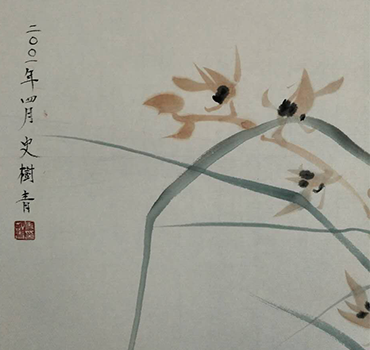 二〇〇一年四月史樹青